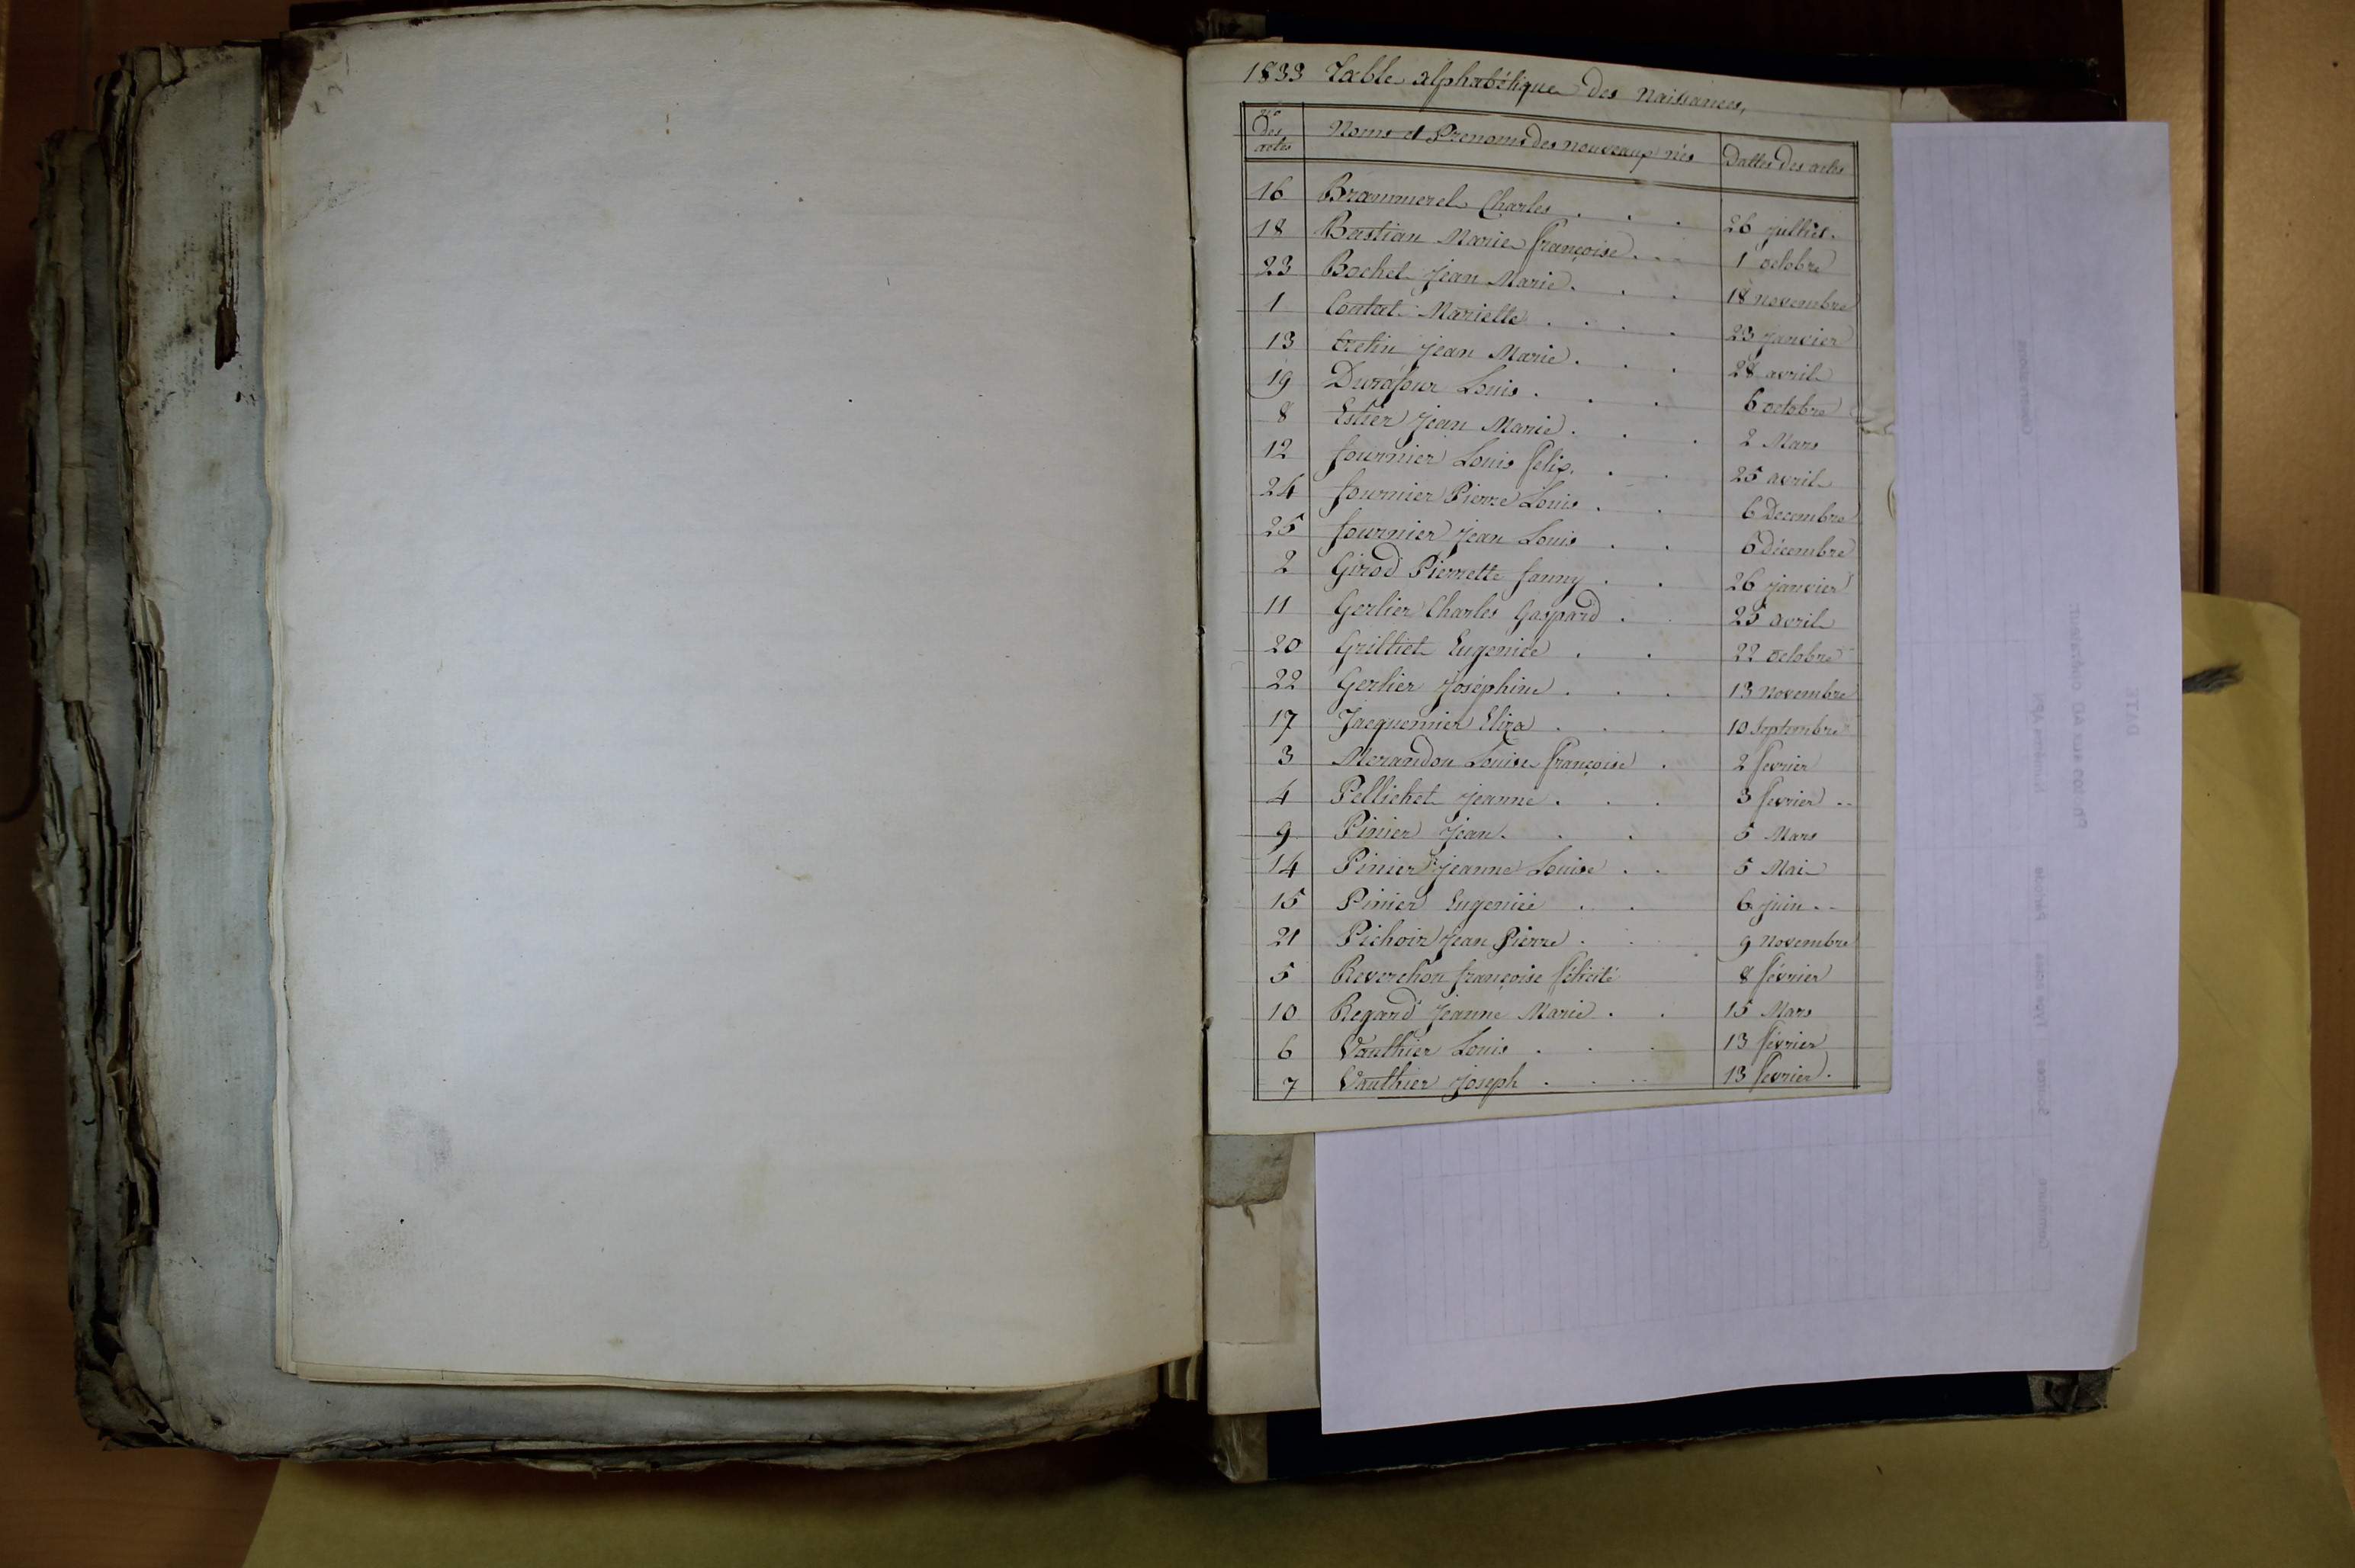 1833 Table alphabétique des Naissances,
No des actes Noms et Prenoms des nouveaux nés Dattes des actes
16 Brammerel Charles . . . 26 juillet.
18 Bastian Marie françoise . . . 1 octobre
23 Bachet jean Marie . . . 18 novembre
1 Contat Mariette . . . . 23 janvier
13 Cretin jean Marie . . . 28 avril
19 Durafour Louis . . . 6 octobre
8 Estier jean Marie . . . 2 Mars
12 fournier Louis felix. . . 25 avril
24 fournier Pierre Louis . . 6 Decembre
25 fournier jean Louis . . 6 décembre
2 Girod Pierrette fanny . . 26 janvier
11 Gerlier Charles Gaspard . . 25 avril
20 Grilliet Eugenie . . 22 octobre
22 Gerlier Joséphine . . . 13 novembre
17 Jacquemier Eliza . . . 10 Septembre
3 Morandon Louise françoise . 2 fevrier
4 Pellichet jeanne . . . 3 fevrier ..
9 Pinier jean . . . 5 Mars
14 Pinier jeanne Louise . . 5 Mai
15 Pinier Eugenie . . 6 juin . -
21 Pichoir jean Pierre . . 9 Novembre
5 Reverchon françoise félicité 8 février
10 Regard jeanne Marie . . 15 Mars
6 Vauthier Louis . . . 13 février
7 Vauthier joseph . . . 13 fevrier.
DATE